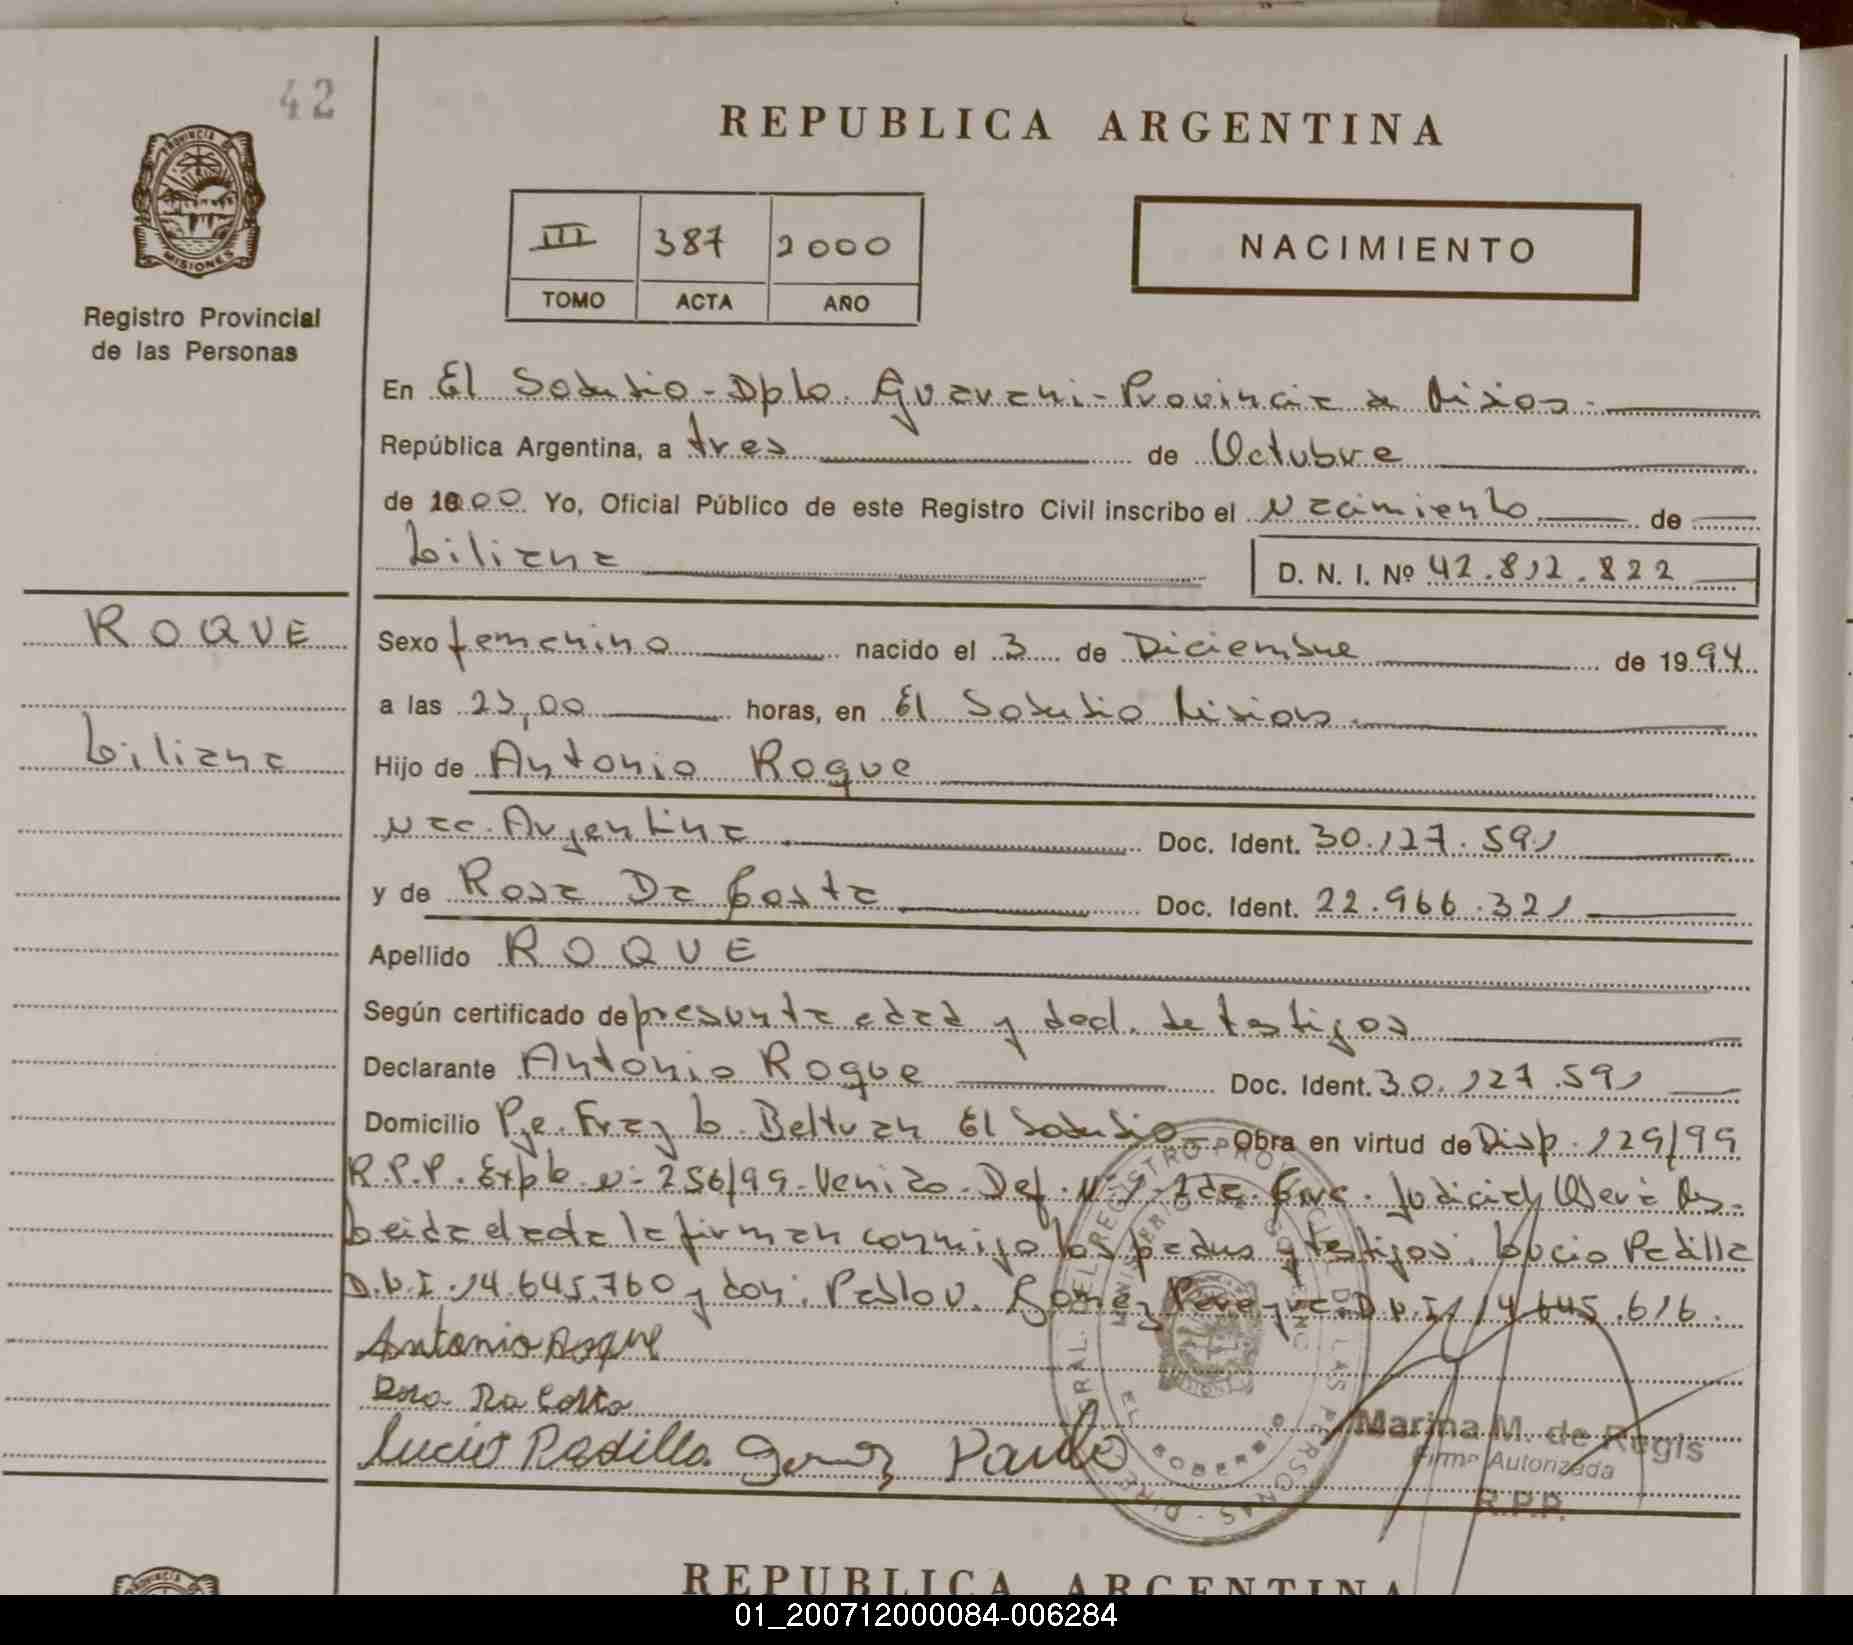 42
REPUBLICA ARGENTINA
PROVINCIA DE
MISIONES
III 387 2000
TOMO ACTA AÑO
NACIMIENTO
Registro Provincial
de las Personas
En El Soberbio - Dpto. Guarani - Provincia de Misiones
República Argentina, a tres de Octubre
de 2000 Yo, Oficial Público de este Registro Civil inscribo el Nacimiento de
Liliana
D. N. I. Nº 42.812.822
ROQUE
Liliana
Sexo femenino nacido el 3 de Diciembre de 1994
a las 23,00 horas, en El Soberbio Misiones.
Hijo de Antonio Roque
Nac. Argentina Doc. Ident. 30.127.591
y de Rosa Da Costa Doc. Ident. 22.966.321
Apellido ROQUE
Según certificado de presunta edad y decl. de testigos
Declarante Antonio Roque Doc. Ident. 30.127.591
Domicilio Pje. Fray L. Beltran El Soberbio Obra en virtud de Disp. 129/99
R.P.P. Expte. Nº 256/99 - Def. Nº 1 - 2da. Circ. Judicial
Leida el acta la firman conmigo los padres y testigos: Lucio Padilla
D.N.I. 14.645.760 y don: Pablo V. Gomez D.N.I. 14.645.616.
Antonio Roque
Rosa Da Costa
Lucio Padilla Gomez Paulo
Marina M. de Regis
Firma Autorizada
R.P.P.
REPUBLICA ARGENTINA
01_200712000084-006284